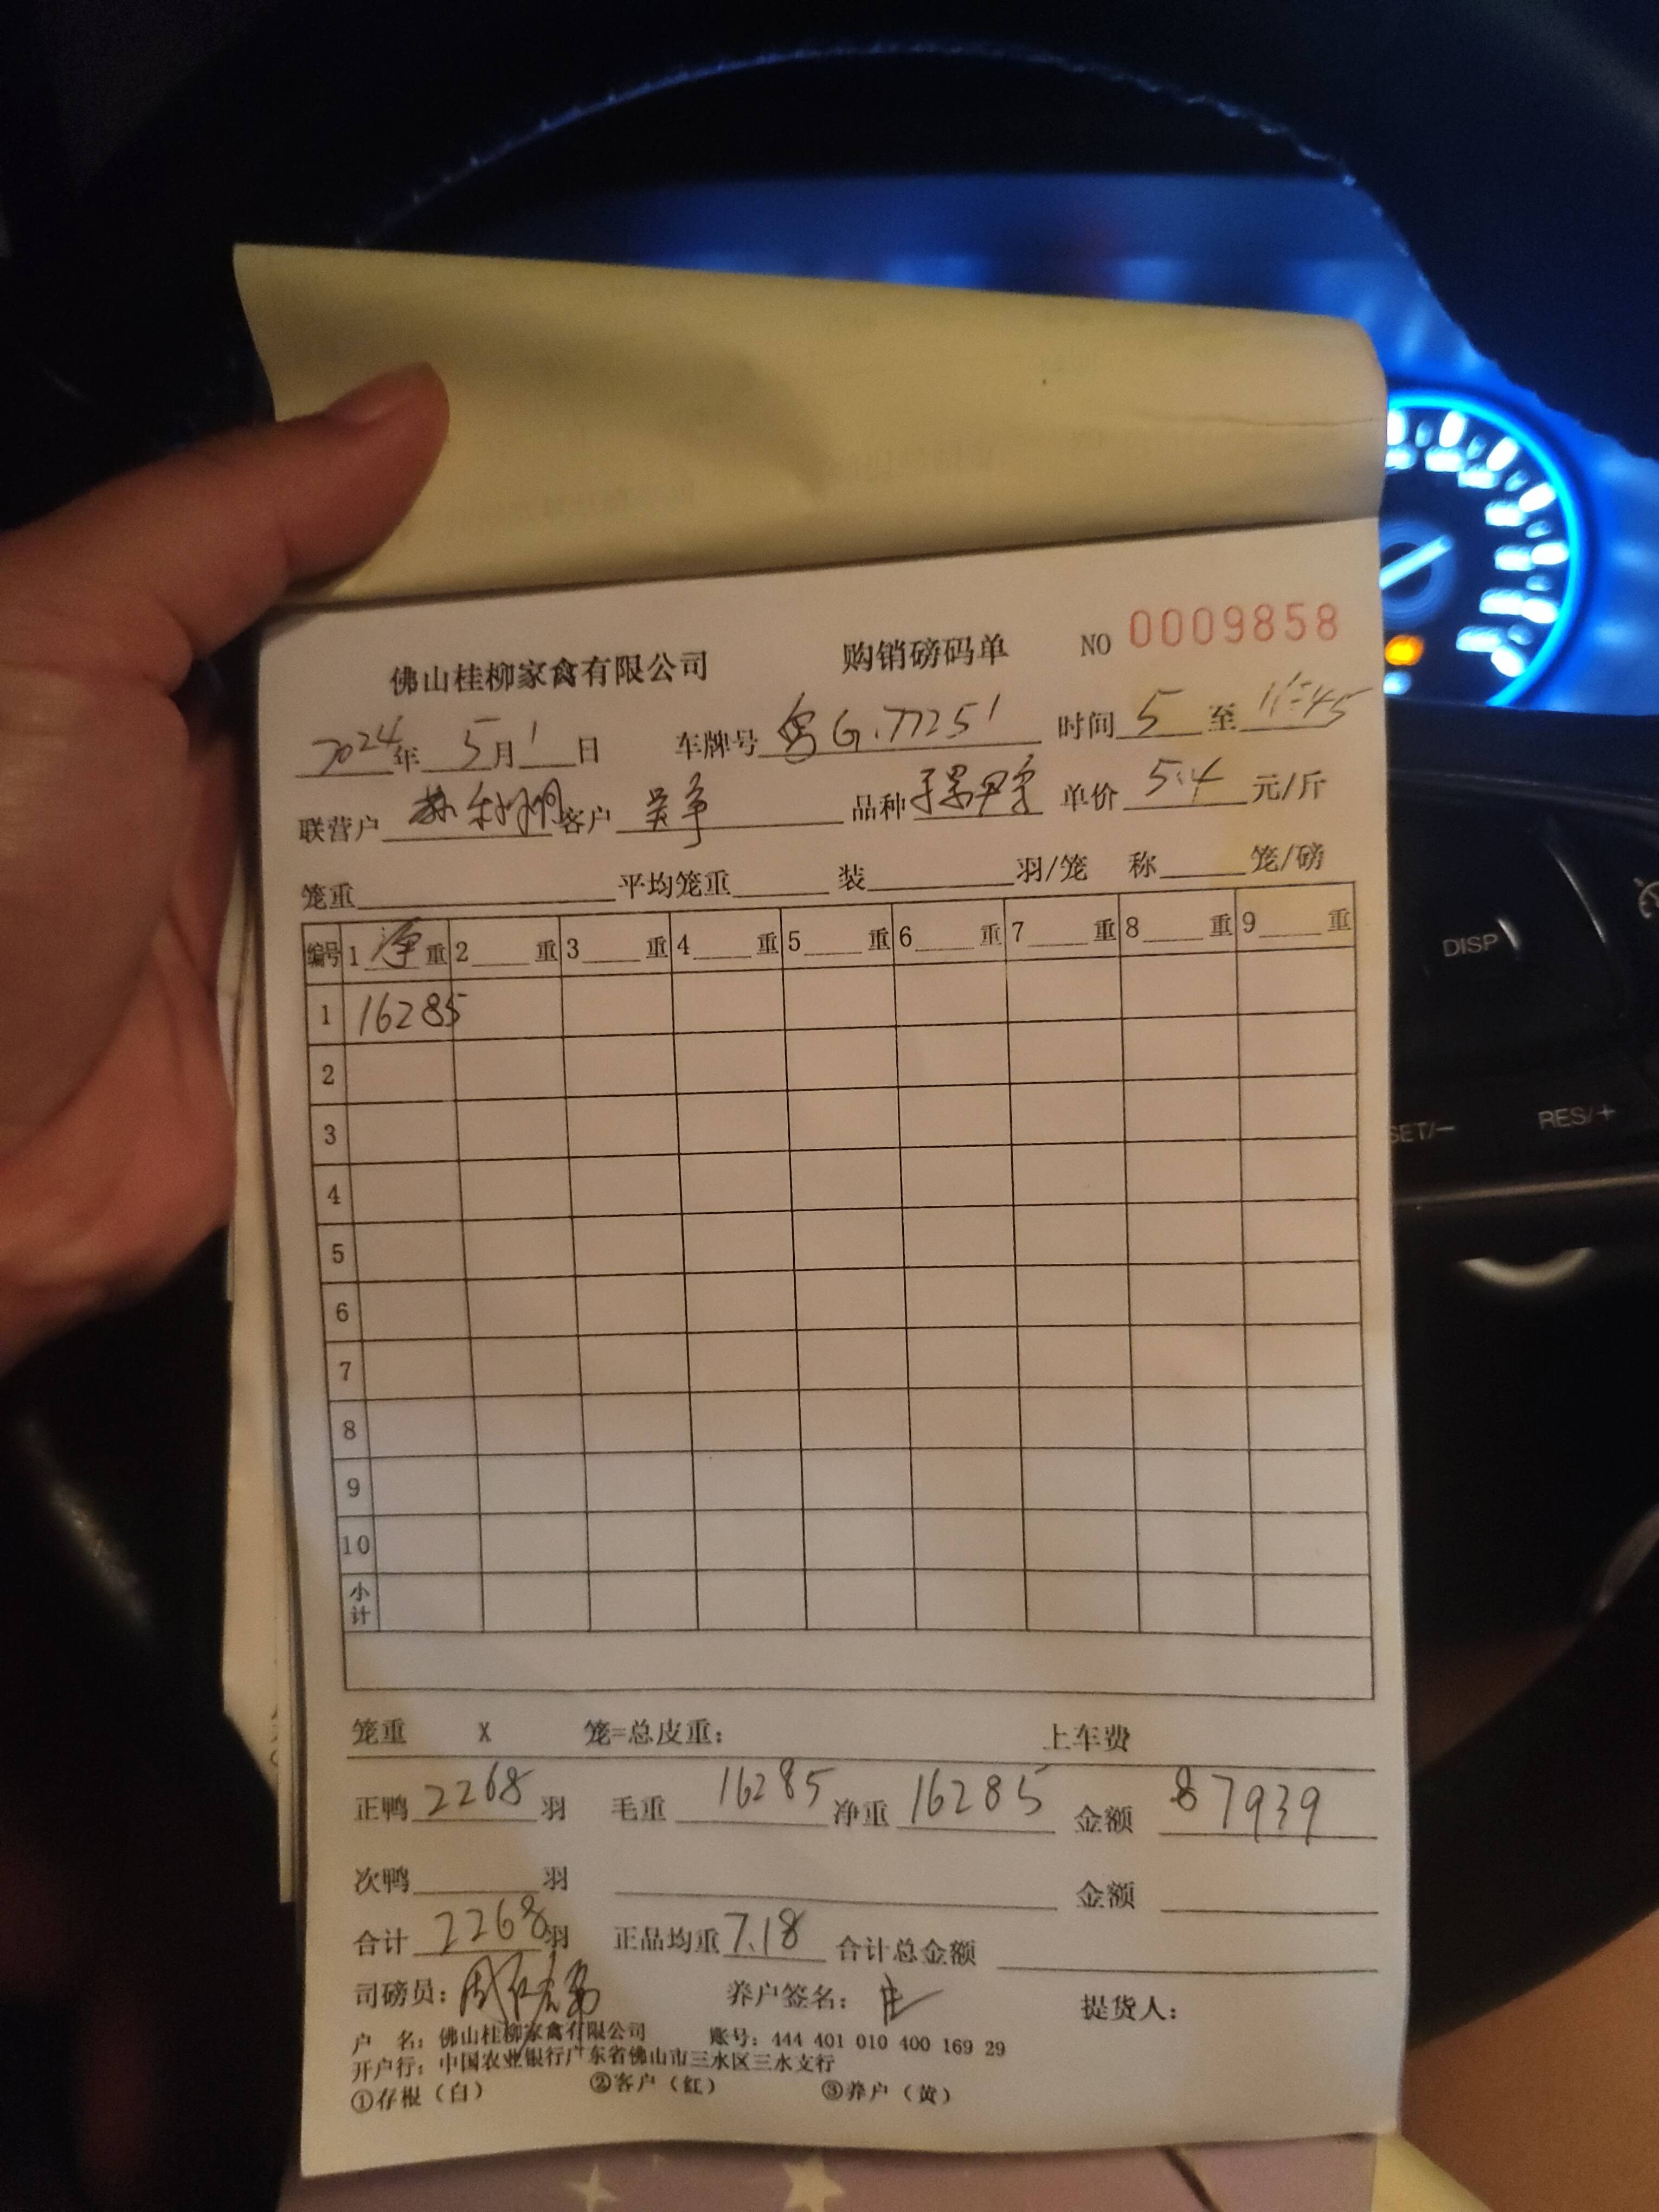 佛山桂柳家禽有限公司 购销磅码单 NO 0009858
2024年 5月 1日 车牌号 粤G.77251 时间 5 至 11:45
联营户 客户 吴争 品种 单价 5.4 元/斤
笼重 平均笼重 装 羽/笼 称 笼/磅
编号 1 净 重 2 重 3 重 4 重 5 重 6 重 7 重 8 重 9 重
1 16285
2
3
4
5
6
7
8
9
10
小计
笼重 X 笼=总皮重: 上车费
正鸭 2268 羽 毛重 16285 净重 16285 金额 87939
次鸭 羽 金额
合计 2268 羽 正品均重 7.18 合计总金额
司磅员: 养户签名: 提货人:
户 名: 佛山桂柳家禽有限公司 账号: 444 401 010 400 169 29
开户行: 中国农业银行广东省佛山市三水区三水支行
①存根（白） ②客户（红） ③养户（黄）
DISP
SET/−
RES/+